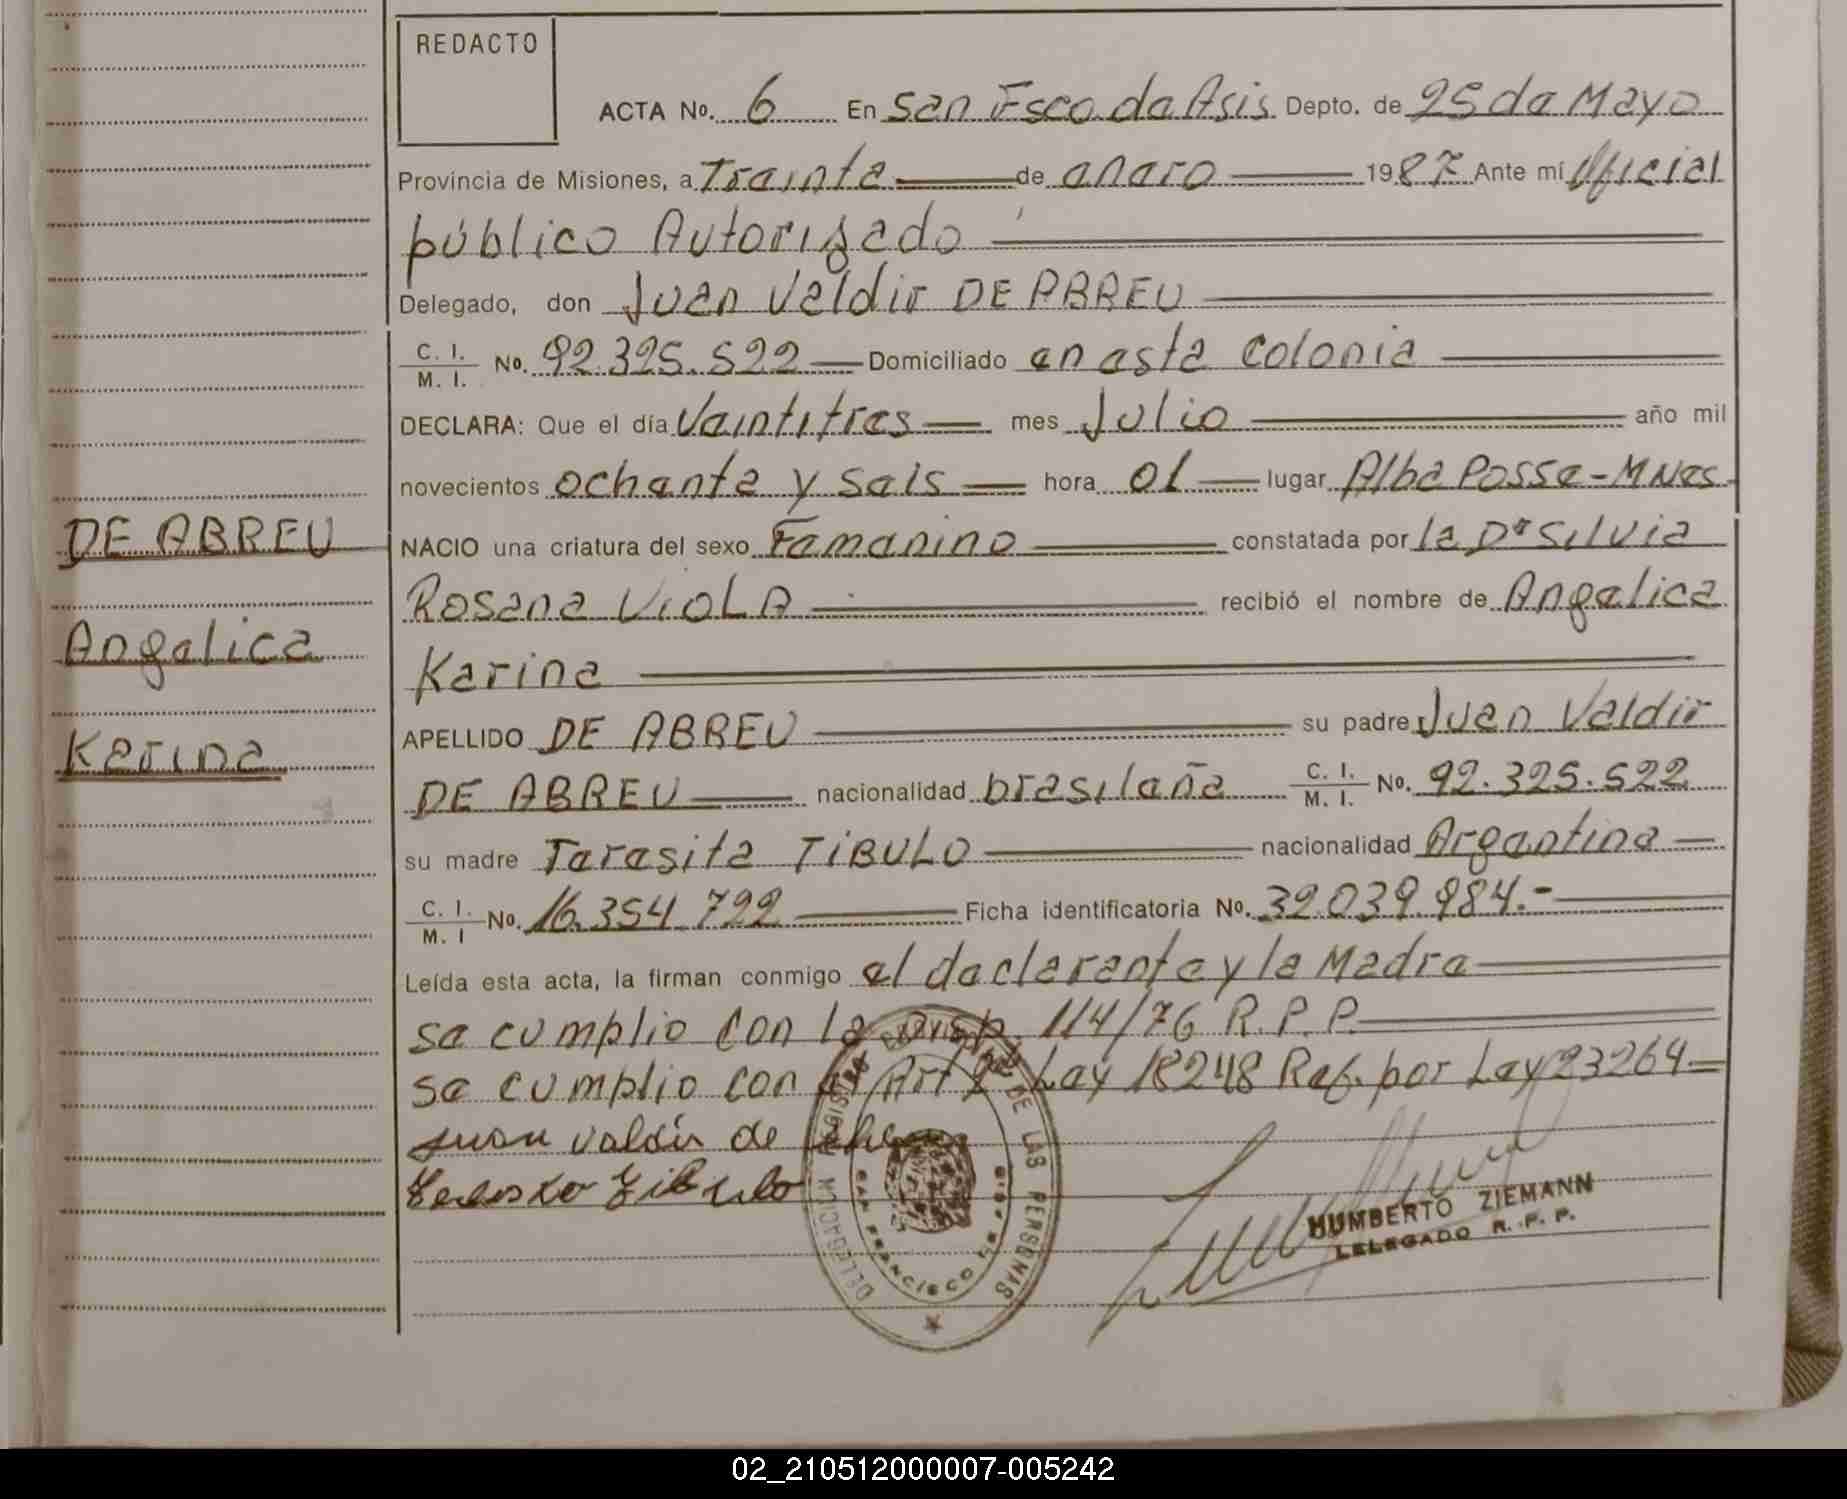 REDACTO
ACTA No. 6 En San Fsco. de Asis Depto. de 25 de Mayo
Provincia de Misiones, a Treinta de enero 1987 Ante mí Oficial
público Autorizado
Delegado, don Juan Valdir DE ABREU
C. I. / M. I. No. 92.325.522 Domiciliado en esta colonia
DECLARA: Que el día Veintitres mes Julio año mil
novecientos ochenta y seis hora 01 lugar Alba Posse - MNes.
DE ABREU
NACIO una criatura del sexo Femenino constatada por la Dra Silvia
Rosana VIOLA recibió el nombre de Angelica
Angelica
Karina
Karina
APELLIDO DE ABREU su padre Juan Valdir
DE ABREU nacionalidad brasileña C. I. / M. I. No. 92.325.522
su madre Teresita TIBULO nacionalidad Argentina
C. I. / M. I No. 16.354.722 Ficha identificatoria No. 32.039.984.-
Leída esta acta, la firman conmigo el declarante y la Madre
se cumplio con la Disp. 114/76 R.P.P.
se cumplio con el Art 2º Ley 18248 Ref. por Ley 23264
juan valdir de
Tibulo
HUMBERTO ZIEMANN
DELEGADO R. P. P.
DE LAS PERSONAS
SAN FRANCISCO DE ASIS
02_210512000007-005242